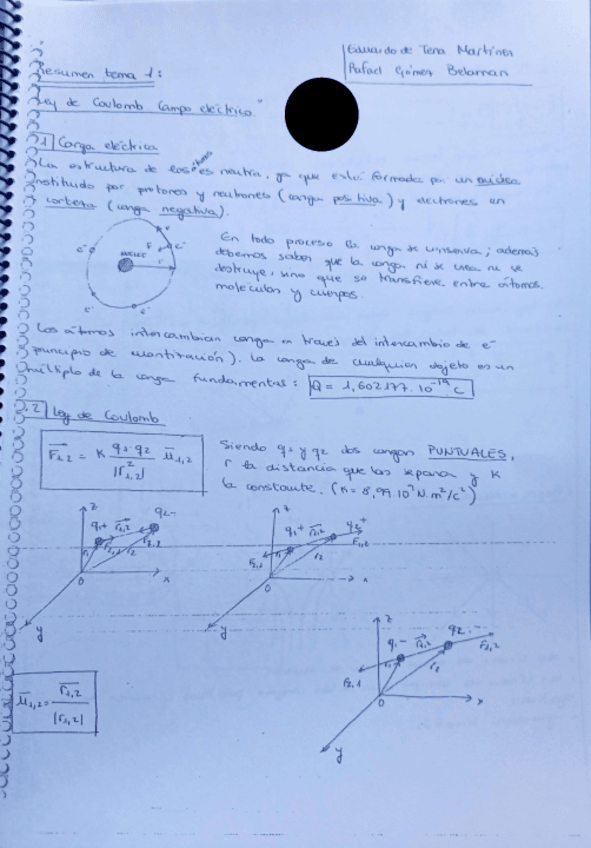 Eduardo de Tena Martínez
Rafael Gómez Belamán
Resumen tema 1:
Ley de Coulomb Campo eléctrico"
1 Carga eléctrica
La estructura de los átomos es neutra, ya que está formada por un núcleo
constituido por protones y neutrones (carga positiva) y electrones en
corteza (carga negativa).
En todo proceso la carga se conserva; además
debemos saber que la carga ni se crea ni se
destruye, sino que se transfiere entre átomos,
moléculas y cuerpos.
NÚCLEO
r
F
v
e-
e-
e-
e-
e-
Los átomos intercambian carga a través del intercambio de e-
principio de cuantización). La carga de cualquier objeto es un
múltiplo de la carga fundamental: Q = 1,602177·10⁻¹⁹ C
.2 Ley de Coulomb
F₁,₂ = K q₁·q₂ / |r²₁,₂| u₁,₂
Siendo q₁ y q₂ dos cargas PUNTUALES,
r la distancia que las separa y K
la constante. (K = 8,99·10⁹ N·m²/C²)
z q₁+ r₁,₂ q₂- F₂,₁ r₁ r₂ 0 x y
z q₁+ r₁,₂ q₂+ F₁,₂ F₂,₁ r₁ r₂ 0 x y
z q₁- r₁,₂ q₂- F₁,₂ F₂,₁ r₁ r₂ 0 x y
u₁,₂ = r₁,₂ / |r₁,₂|